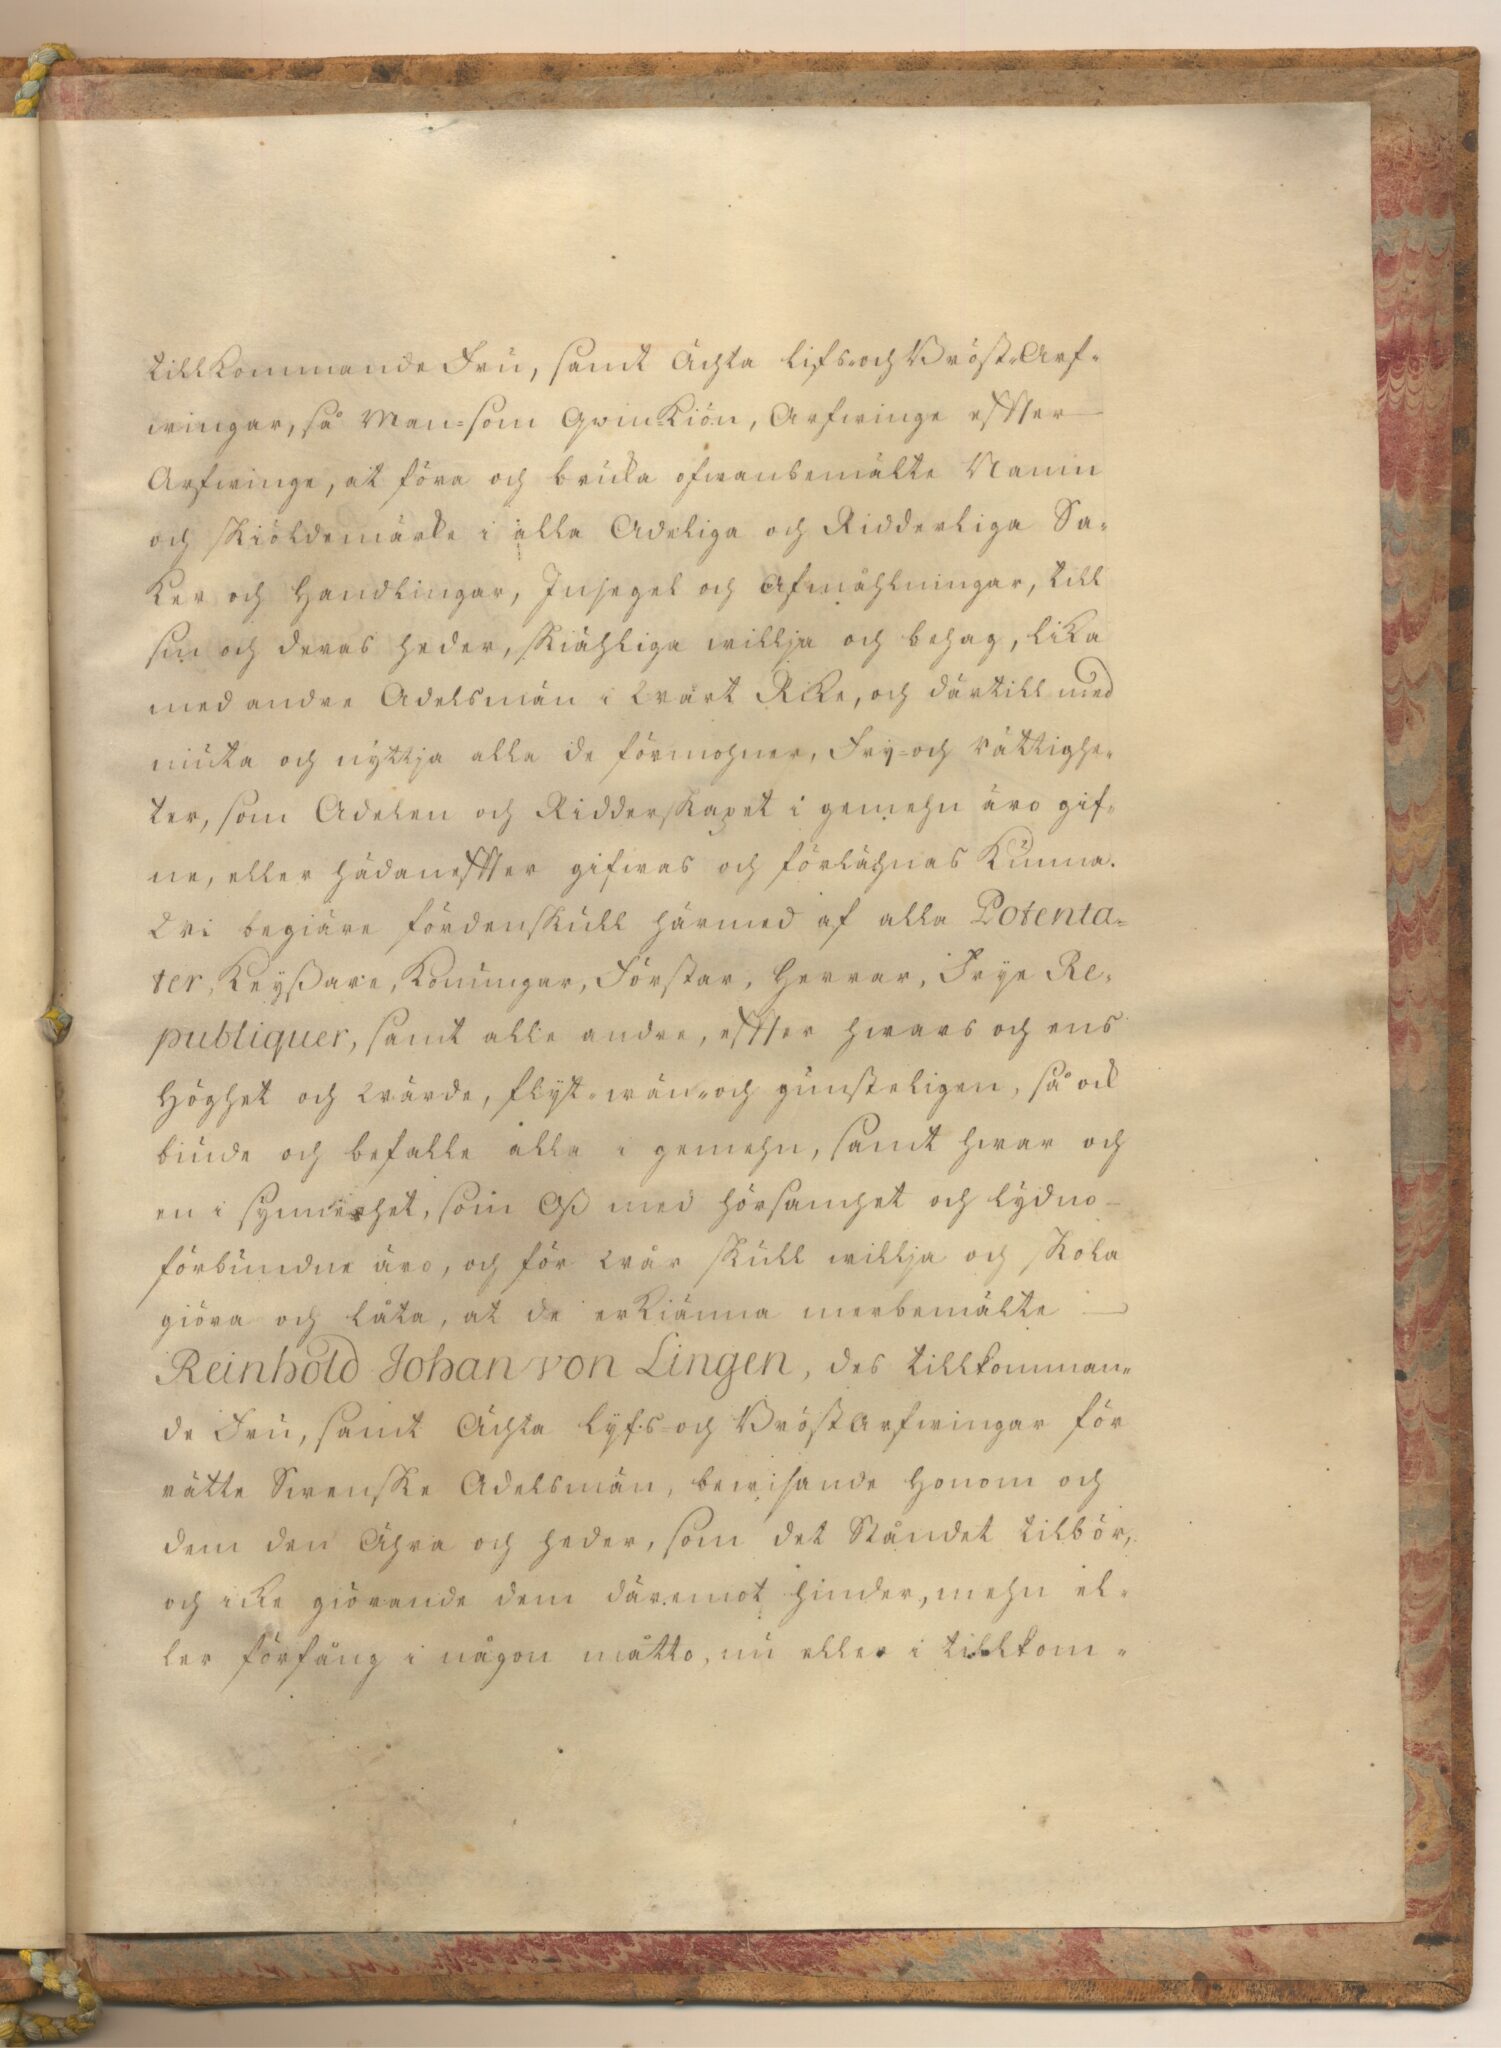 tillkommande Fru, samt Ächta lifs- och Bröst-Arf-
wingar, så Man- som Qwin-Kiön, Arfwinge effter
Arfwinge, at föra och bruka ofwanbemälte Namn
och Skiöldemärke i alla Adeliga och Ridderliga Sa-
ker och Handlingar, Insegel och Afmåhlningar, till
sin och deras heder, skiähliga willja och behag, lika
med andre Adelsmän i Wårt Rike, och därtill med
niuta och nyttja alla de förmohner, Fry- och Rättighe-
ter, som Adelen och Ridderskapet i gemehn äro gif-
ne, eller hädaneffter gifwas och förlähnas kunna.
Wi begiäre fördenskull härmed af alla Potenta-
ter, Keyßare, Konungar, Förstar, Herrar, Frye Re-
publiquer, samt alle andre, effter hwars och ens
Höghet och Wärde, flyt- wän- och gunsteligen, så ock
biude och befalle alla i gemehn, samt hwar och
en i synnerhet, som Oß med hörsamhet och lydno
förbundne äro, och för Wår skull willja och skola
giöra och låta, at de erkiänna merbemälte
Reinhold Johan von Lingen, des tillkomman-
de Fru, samt Ächta lyfs- och Bröst Arfwingar för
rätte Swenske Adelsmän, bewisande Honom och
dem den Ähra och heder, som det Ståndet tilbör,
och icke giörande dem däremot hinder, mehn el-
ler förfång i någon måtto, nu eller i tillkom-